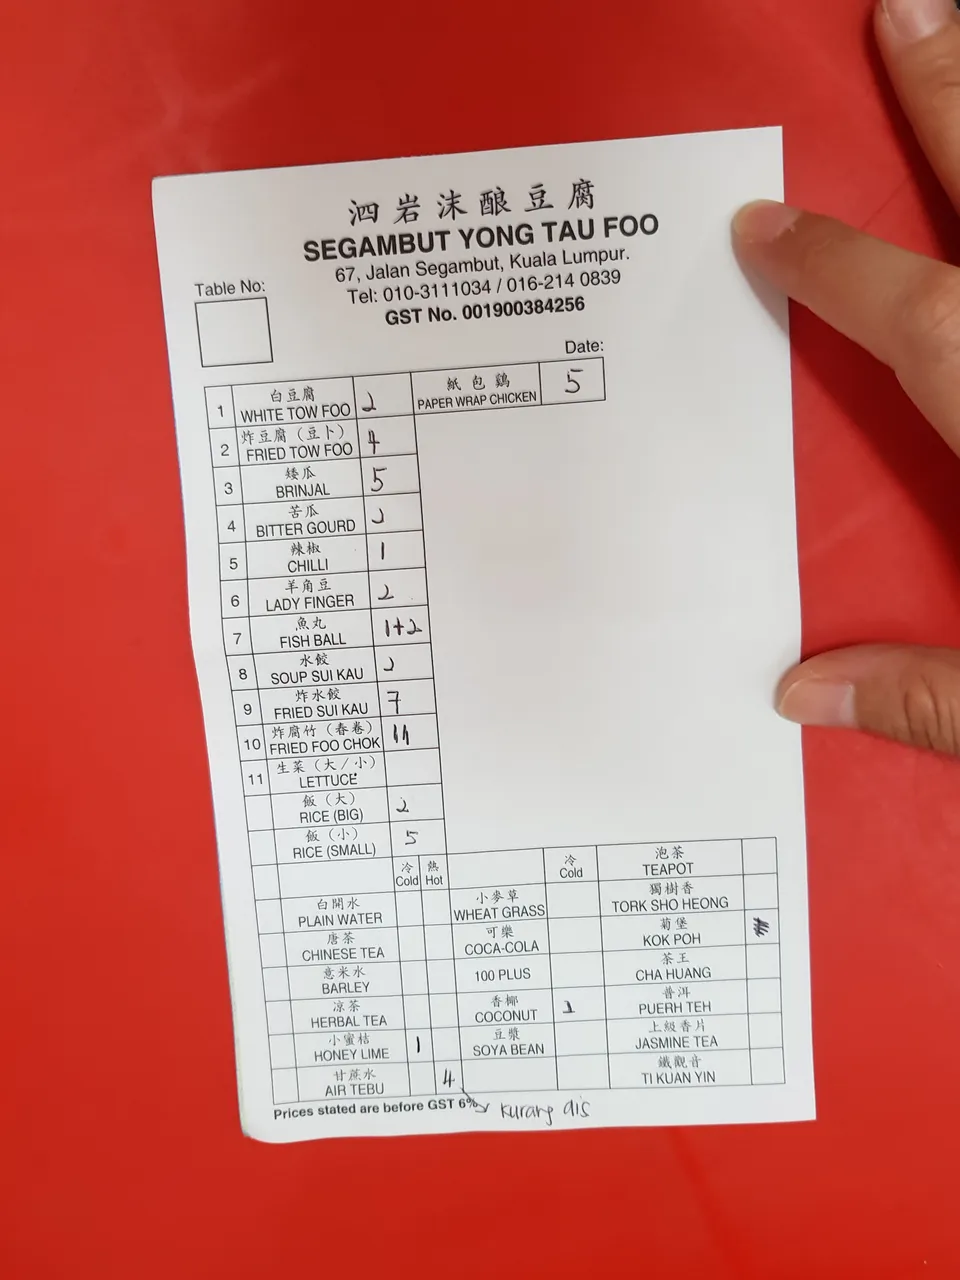 泗岩沫酿豆腐
SEGAMBUT YONG TAU FOO
67, Jalan Segambut, Kuala Lumpur.
Tel: 010-3111034 / 016-214 0839
GST No. 001900384256
Table No:
Date:
1 白豆腐 2 紙包鷄 5
WHITE TOW FOO PAPER WRAP CHICKEN
2 炸豆腐（豆卜） 4
FRIED TOW FOO
3 矮瓜 5
BRINJAL
4 苦瓜
BITTER GOURD
5 辣椒 1
CHILLI
6 羊角豆 2
LADY FINGER
7 魚丸 1+2
FISH BALL
8 水餃
SOUP SUI KAU
9 炸水餃 7
FRIED SUI KAU
10 炸腐竹（春卷）
FRIED FOO CHOK
11 生菜（大／小）
LETTUCE
飯（大） 2
RICE (BIG)
飯（小） 5
RICE (SMALL)
冷 熱 冷 泡茶
Cold Hot Cold TEAPOT
白開水 小麥草 獨樹香
PLAIN WATER WHEAT GRASS TORK SHO HEONG
唐茶 可樂 菊堡
CHINESE TEA COCA-COLA KOK POH
意米水 100 PLUS 茶王
BARLEY CHA HUANG
凉茶 香椰 普洱
HERBAL TEA COCONUT PUERH TEH
小蜜桔 1 豆漿 上級香片
HONEY LIME SOYA BEAN JASMINE TEA
甘蔗水 4 鐵觀音
AIR TEBU TI KUAN YIN
Prices stated are before GST 6% kurang ais